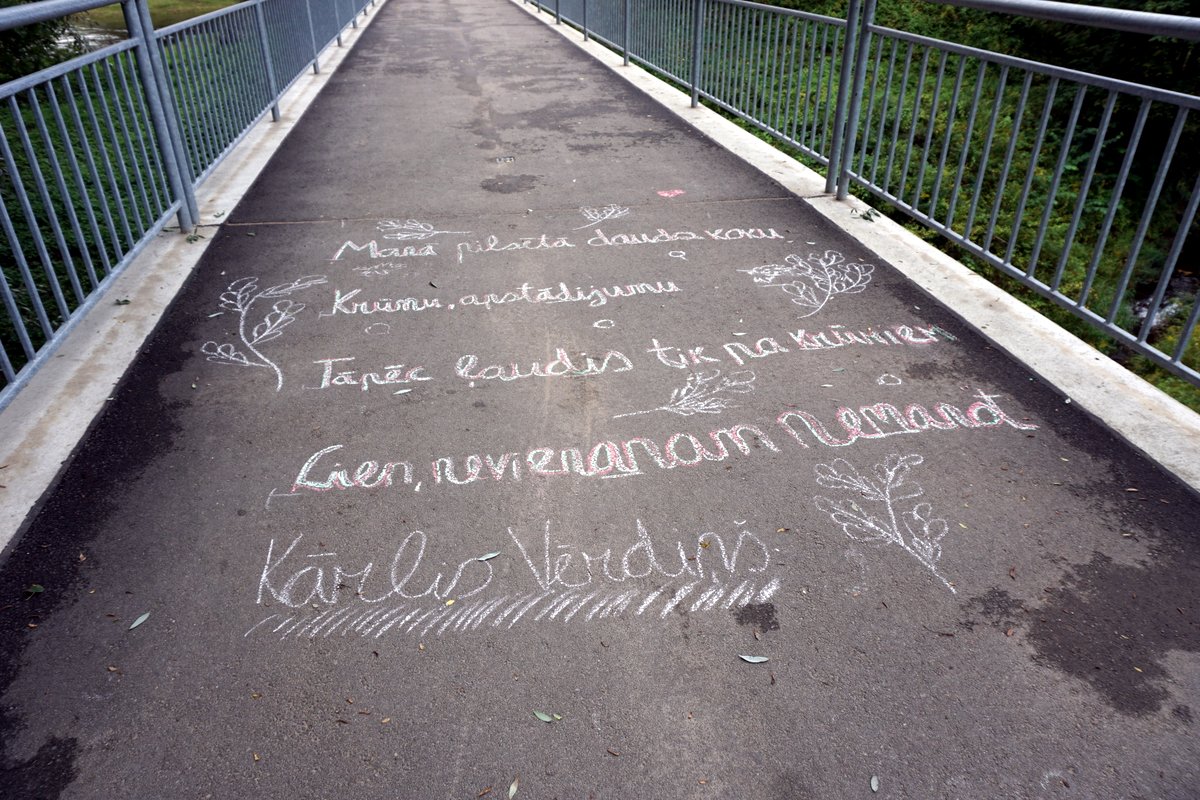 Manā pilsētā daudz koku,
Krūmu, apstādījumu
Tāpēc ļaudis tik pa krūmiem
Lien, nevienam nemanot
Kārlis Vērdiņš